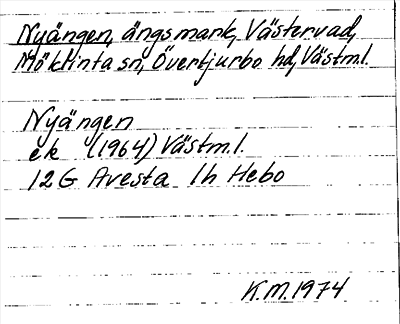 Nyängen, ängsmark, Västervad,
Möklinta sn, Övertjurbo hd, Västml.
Nyängen
ek (1964) Västml.
12G Avesta 1h Hebo
K.M. 1974